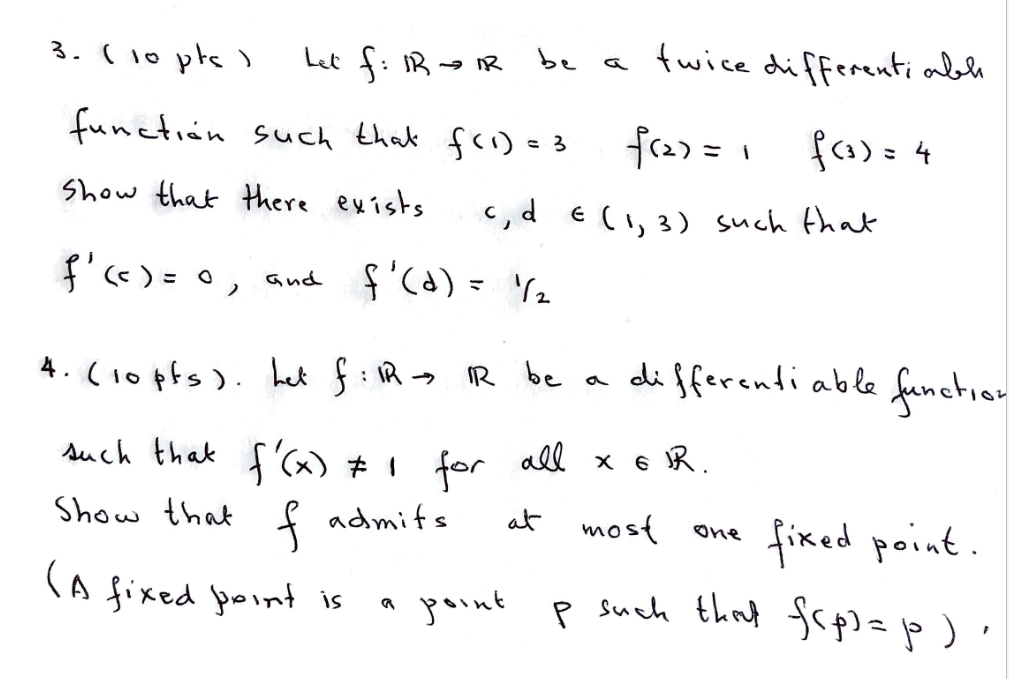 3. (10 pts) Let f: ℝ → ℝ be a twice differentiable
function such that f(1) = 3 f(2) = 1 f(3) = 4
Show that there exists c, d ∈ (1, 3) such that
f'(c) = 0, and f'(d) = 1/2
4. (10 pts). Let f: ℝ → ℝ be a differentiable function
such that f'(x) ≠ 1 for all x ∈ ℝ.
Show that f admits at most one fixed point.
(A fixed point is a point p such that f(p) = p).